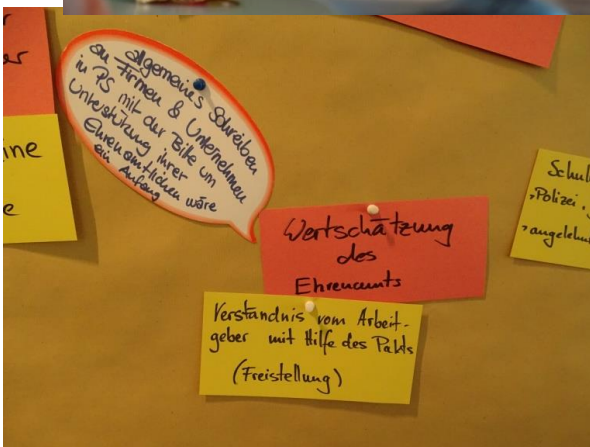 allgemeines Schreiben
an Firmen & Unternehmen
in PS mit der Bitte um
Unterstützung ihrer
Ehrenamtlichen wäre
ein Anfang
ine
e
Wertschätzung
des
Ehrenamts
Verständnis vom Arbeit-
geber mit Hilfe des Pakts
(Freistellung)
Schul
Polizei,
angelehn